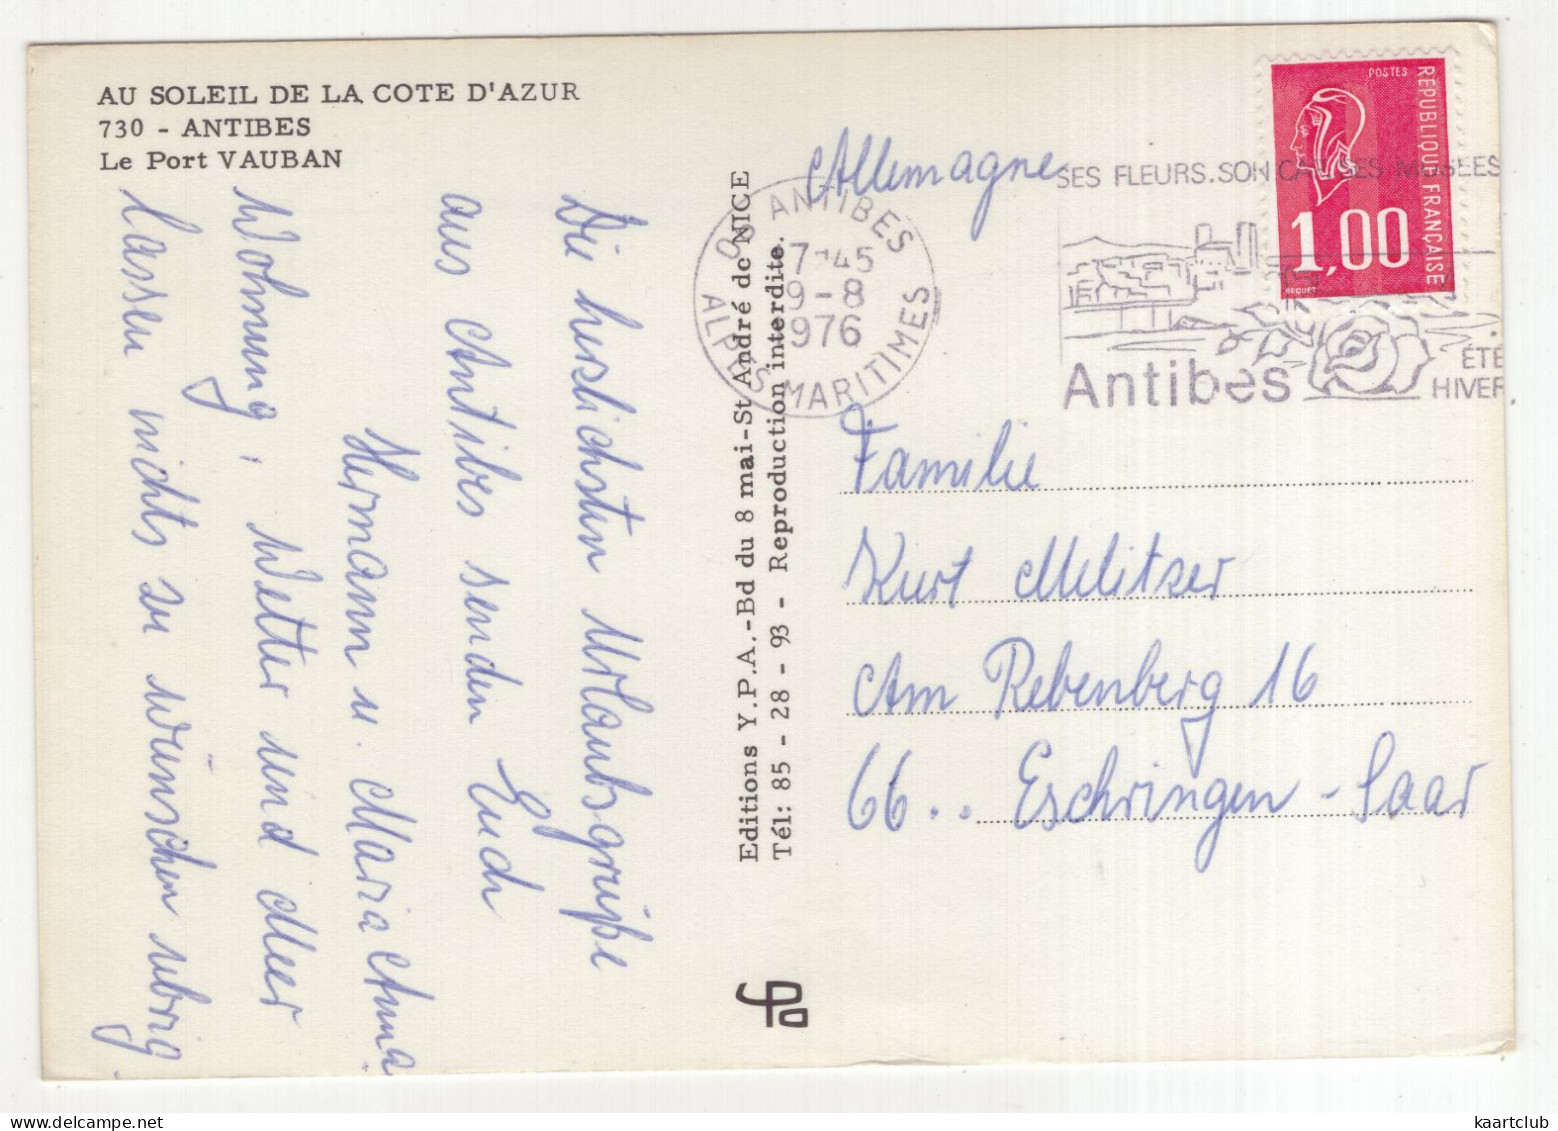 AU SOLEIL DE LA COTE D'AZUR
730 - ANTIBES
Le Port VAUBAN
Die herzlichsten Urlaubsgrüße
aus Antibes senden Euch
Hermann u. Maria Anna
Wohnung, Wetter und Meer
lassen nichts zu wünschen übrig
Editions Y.P.A.-Bd du 8 mai-St André de NICE
Tél: 85 - 28 - 93 - Reproduction interdite.
06 ANTIBES
7-45
9-8
1976
ALPES MARITIMES
SES FLEURS.SON CAP SES MUSEES
Antibes
ÉTÉ
HIVER
POSTES
RÉPUBLIQUE FRANÇAISE
1,00
BEQUET
Allemagne
Familie
Kurt Melitzer
Am Rebenberg 16
66.. Eschringen - Saar
kaartclub